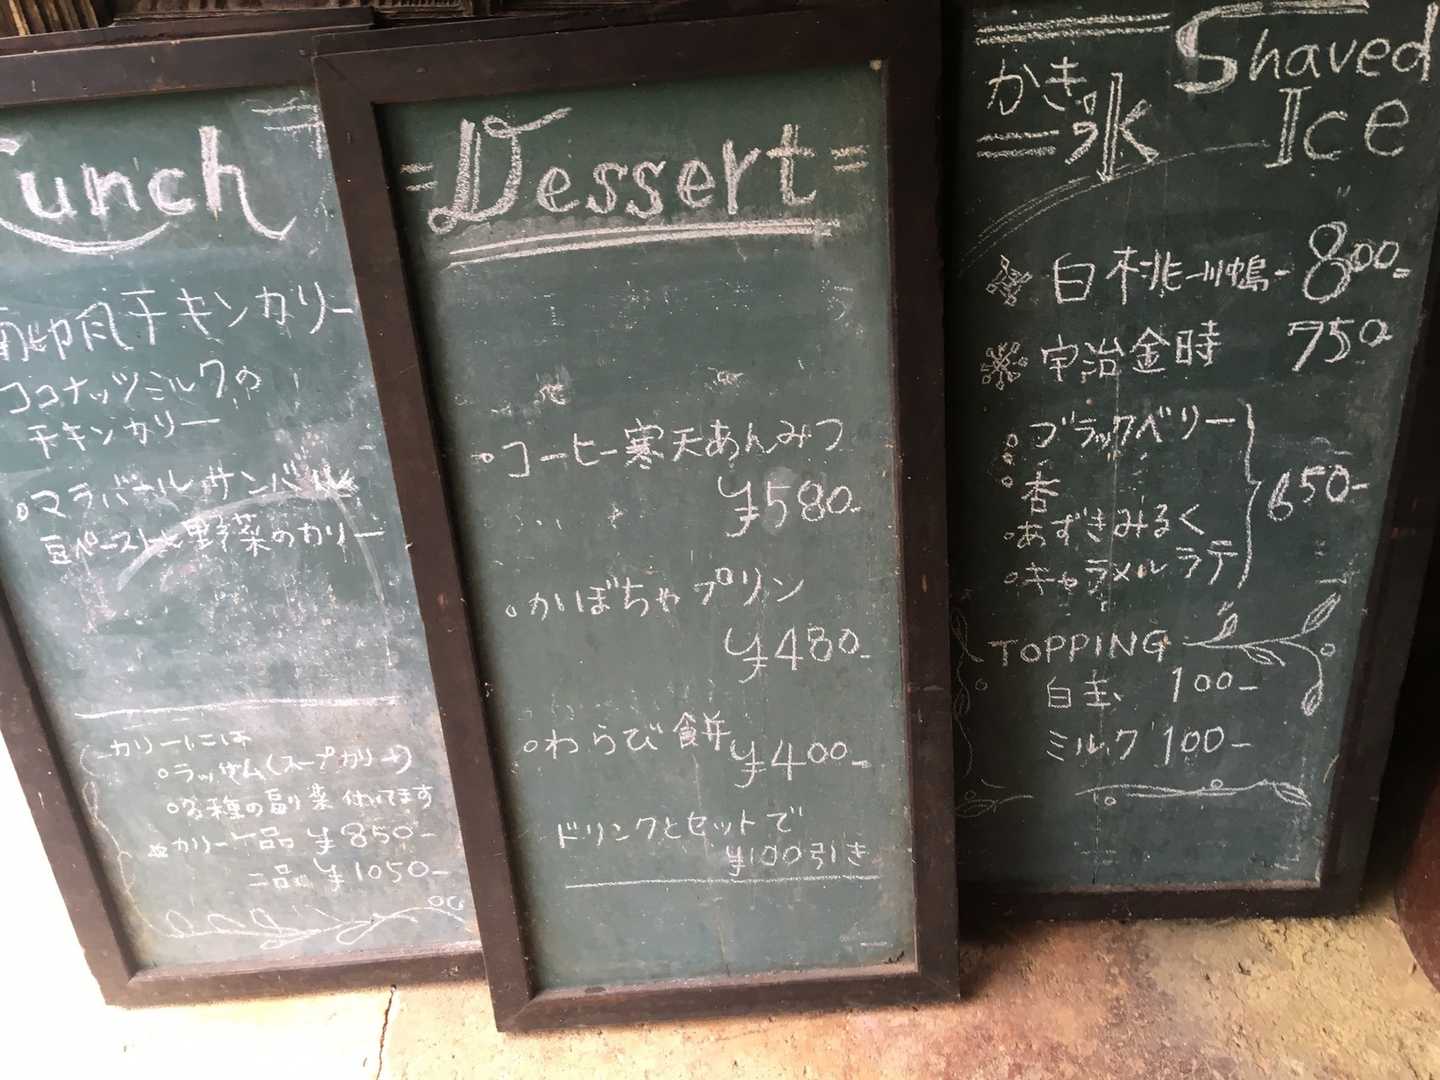 Lunch
南印風チキンカリー
ココナッツミルクの
チキンカリー
○マラバールサンバル
豆ペーストと野菜のカリー
カリーには
○ラッサム(スープカリー)
○各種の副菜付いてます
カリー一品 ¥850-
二品 ¥1050-
=Dessert=
○コーヒー寒天あんみつ
¥580-
○かぼちゃプリン
¥480-
○わらび餅
¥400-
ドリンクとセットで
¥100引き
かき氷 Shaved Ice
白桃 800-
宇治金時 750-
○ブラックベリー
○杏
○あずきみるく
○キャラメルラテ
650-
TOPPING
白玉 100-
ミルク 100-